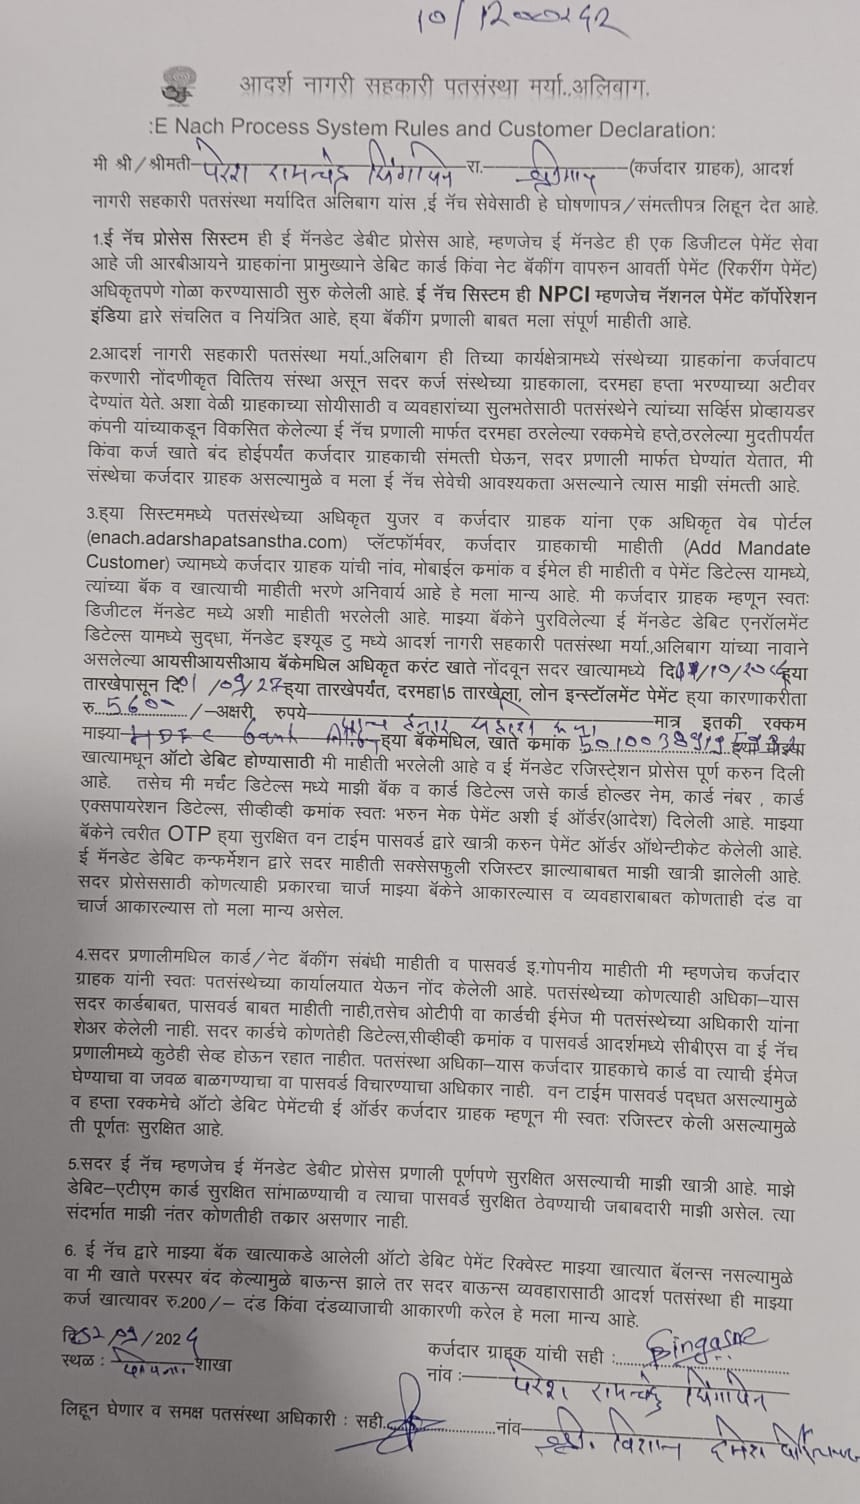 10/1200
आदर्श नागरी सहकारी पतसंस्था मर्या.,अलिबाग.
:E Nach Process System Rules and Customer Declaration:
मी श्री/श्रीमती- परेश रामचंद्र शिंगासने रा. (कर्जदार ग्राहक), आदर्श
नागरी सहकारी पतसंस्था मर्यादित अलिबाग यांस ,ई नॅच सेवेसाठी हे घोषणापत्र/संमत्तीपत्र लिहून देत आहे.
1.ई नॅच प्रोसेस सिस्टम ही ई मॅनडेट डेबीट प्रोसेस आहे, म्हणजेच ई मॅनडेट ही एक डिजीटल पेमेंट सेवा
आहे जी आरबीआयने ग्राहकांना प्रामुख्याने डेबिट कार्ड किंवा नेट बॅकींग वापरुन आवर्ती पेमेंट (रिकरींग पेमेंट)
अधिकृतपणे गोळा करण्यासाठी सुरु केलेली आहे. ई नॅच सिस्टम ही NPCI म्हणजेच नॅशनल पेमेंट कॉर्पोरेशन
इंडिया द्वारे संचलित व नियंत्रित आहे, ह्या बॅकींग प्रणाली बाबत मला संपूर्ण माहीती आहे.
2.आदर्श नागरी सहकारी पतसंस्था मर्या.,अलिबाग ही तिच्या कार्यक्षेत्रामध्ये संस्थेच्या ग्राहकांना कर्जवाटप
करणारी नोंदणीकृत वित्तिय संस्था असून सदर कर्ज संस्थेच्या ग्राहकाला, दरमहा हप्ता भरण्याच्या अटीवर
देण्यांत येते. अशा वेळी ग्राहकाच्या सोयीसाठी व व्यवहारांच्या सुलभतेसाठी पतसंस्थेने त्यांच्या सर्व्हिस प्रोव्हायडर
कंपनी यांच्याकडून विकसित केलेल्या ई नॅच प्रणाली मार्फत दरमहा ठरलेल्या रक्कमेचे हप्ते,ठरलेल्या मुदतीपर्यंत
किंवा कर्ज खाते बंद होईपर्यंत कर्जदार ग्राहकाची संमत्ती घेऊन, सदर प्रणाली मार्फत घेण्यांत येतात, मी
संस्थेचा कर्जदार ग्राहक असल्यामुळे व मला ई नॅच सेवेची आवश्यकता असल्याने त्यास माझी संमत्ती आहे.
3.ह्या सिस्टममध्ये पतसंस्थेच्या अधिकृत युजर व कर्जदार ग्राहक यांना एक अधिकृत वेब पोर्टल
(enach.adarshapatsanstha.com) प्लॅटफॉर्मवर, कर्जदार ग्राहकाची माहीती (Add Mandate
Customer) ज्यामध्ये कर्जदार ग्राहक यांची नांव, मोबाईल कमांक व ईमेल ही माहीती व पेमेंट डिटेल्स यामध्ये,
त्यांच्या बॅक व खात्याची माहीती भरणे अनिवार्य आहे हे मला मान्य आहे. मी कर्जदार ग्राहक म्हणून स्वतः
डिजीटल मॅनडेट मध्ये अशी माहीती भरलेली आहे. माझ्या बॅकेने पुरविलेल्या ई मॅनडेट डेबिट एनरॉलमेंट
डिटेल्स यामध्ये सुद्धा, मॅनडेट इश्यूड टु मध्ये आदर्श नागरी सहकारी पतसंस्था मर्या.,अलिबाग यांच्या नावाने
असलेल्या आयसीआयसीआय बॅकेमधिल अधिकृत करंट खाते नोंदवून सदर खात्यामध्ये दि. /10/ ह्या
तारखेपासून दि. 1/09/27 ह्या तारखेपर्यंत, दरमहा 15 तारखेला, लोन इन्स्टॉलमेंट पेमेंट ह्या कारणाकरीता
रु. 5600 /-अक्षरी, रुपये पाच हजार सहाशे मात्र इतकी रक्कम
माझ्या- HDFC Bank ह्या बॅकेमधिल, खाते कमांक ह्या माझ्या
खात्यामधून ऑटो डेबिट होण्यासाठी मी माहीती भरलेली आहे व ई मॅनडेट रजिस्टे्शन प्रोसेस पूर्ण करुन दिली
आहे. तसेच मी मर्चंट डिटेल्स मध्ये माझी बॅक व कार्ड डिटेल्स जसे कार्ड होल्डर नेम, कार्ड नंबर , कार्ड
एक्सपायरेशन डिटेल्स, सीव्हीव्ही कमांक स्वतः भरुन मेक पेमेंट अशी ई ऑर्डर(आदेश) दिलेली आहे. माझ्या
बॅकेने त्वरीत OTP ह्या सुरक्षित वन टाईम पासवर्ड द्वारे खात्री करुन पेमेंट ऑर्डर ऑथेन्टीकेट केलेली आहे.
ई मॅनडेट डेबिट कन्फर्मेशन द्वारे सदर माहीती सक्सेसफुली रजिस्टर झाल्याबाबत माझी खात्री झालेली आहे.
सदर प्रोसेससाठी कोणत्याही प्रकारचा चार्ज माझ्या बॅकेने आकारल्यास व व्यवहाराबाबत कोणताही दंड वा
चार्ज आकारल्यास तो मला मान्य असेल.
4.सदर प्रणालीमधिल कार्ड/नेट बॅकींग संबंधी माहीती व पासवर्ड इ.गोपनीय माहीती मी म्हणजेच कर्जदार
ग्राहक यांनी स्वतः पतसंस्थेच्या कार्यालयात येऊन नोंद केलेली आहे. पतसंस्थेच्या कोणत्याही अधिका-यास
सदर कार्डबाबत, पासवर्ड बाबत माहीती नाही,तसेच ओटीपी वा कार्डची ईमेज मी पतसंस्थेच्या अधिकारी यांना
शेअर केलेली नाही. सदर कार्डचे कोणतेही डिटेल्स,सीव्हीव्ही कमांक व पासवर्ड आदर्शमध्ये सीबीएस वा ई नॅच
प्रणालीमध्ये कुठेही सेव्ह होऊन रहात नाहीत. पतसंस्था अधिका-यास कर्जदार ग्राहकाचे कार्ड वा त्याची ईमेज
घेण्याचा वा जवळ बाळगण्याचा वा पासवर्ड विचारण्याचा अधिकार नाही. वन टाईम पासवर्ड पद्धत असल्यामुळे
व हप्ता रक्कमेचे ऑटो डेबिट पेमेंटची ई ऑर्डर कर्जदार ग्राहक म्हणून मी स्वतः रजिस्टर केली असल्यामुळे
ती पूर्णतः सुरक्षित आहे.
5.सदर ई नॅच म्हणजेच ई मॅनडेट डेबीट प्रोसेस प्रणाली पूर्णपणे सुरक्षित असल्याची माझी खात्री आहे. माझे
डेबिट-एटीएम कार्ड सुरक्षित सांभाळण्याची व त्याचा पासवर्ड सुरक्षित ठेवण्याची जबाबदारी माझी असेल. त्या
संदर्भात माझी नंतर कोणतीही तकार असणार नाही.
6. ई नॅच द्वारे माझ्या बॅक खात्याकडे आलेली ऑटो डेबिट पेमेंट रिक्वेस्ट माझ्या खात्यात बॅलन्स नसल्यामुळे
वा मी खाते परस्पर बंद केल्यामुळे बाऊन्स झाले तर सदर बाऊन्स व्यवहारासाठी आदर्श पतसंस्था ही माझ्या
कर्ज खात्यावर रु.200/- दंड किंवा दंडव्याजाची आकारणी करेल हे मला मान्य आहे.
दि. /09/202
कर्जदार ग्राहक यांची सही : Singasne
स्थळ : शाखा
नांव :- परेश रामचंद्र शिंगासने
लिहून घेणार व समक्ष पतसंस्था अधिकारी : सही. नांव- श्री.